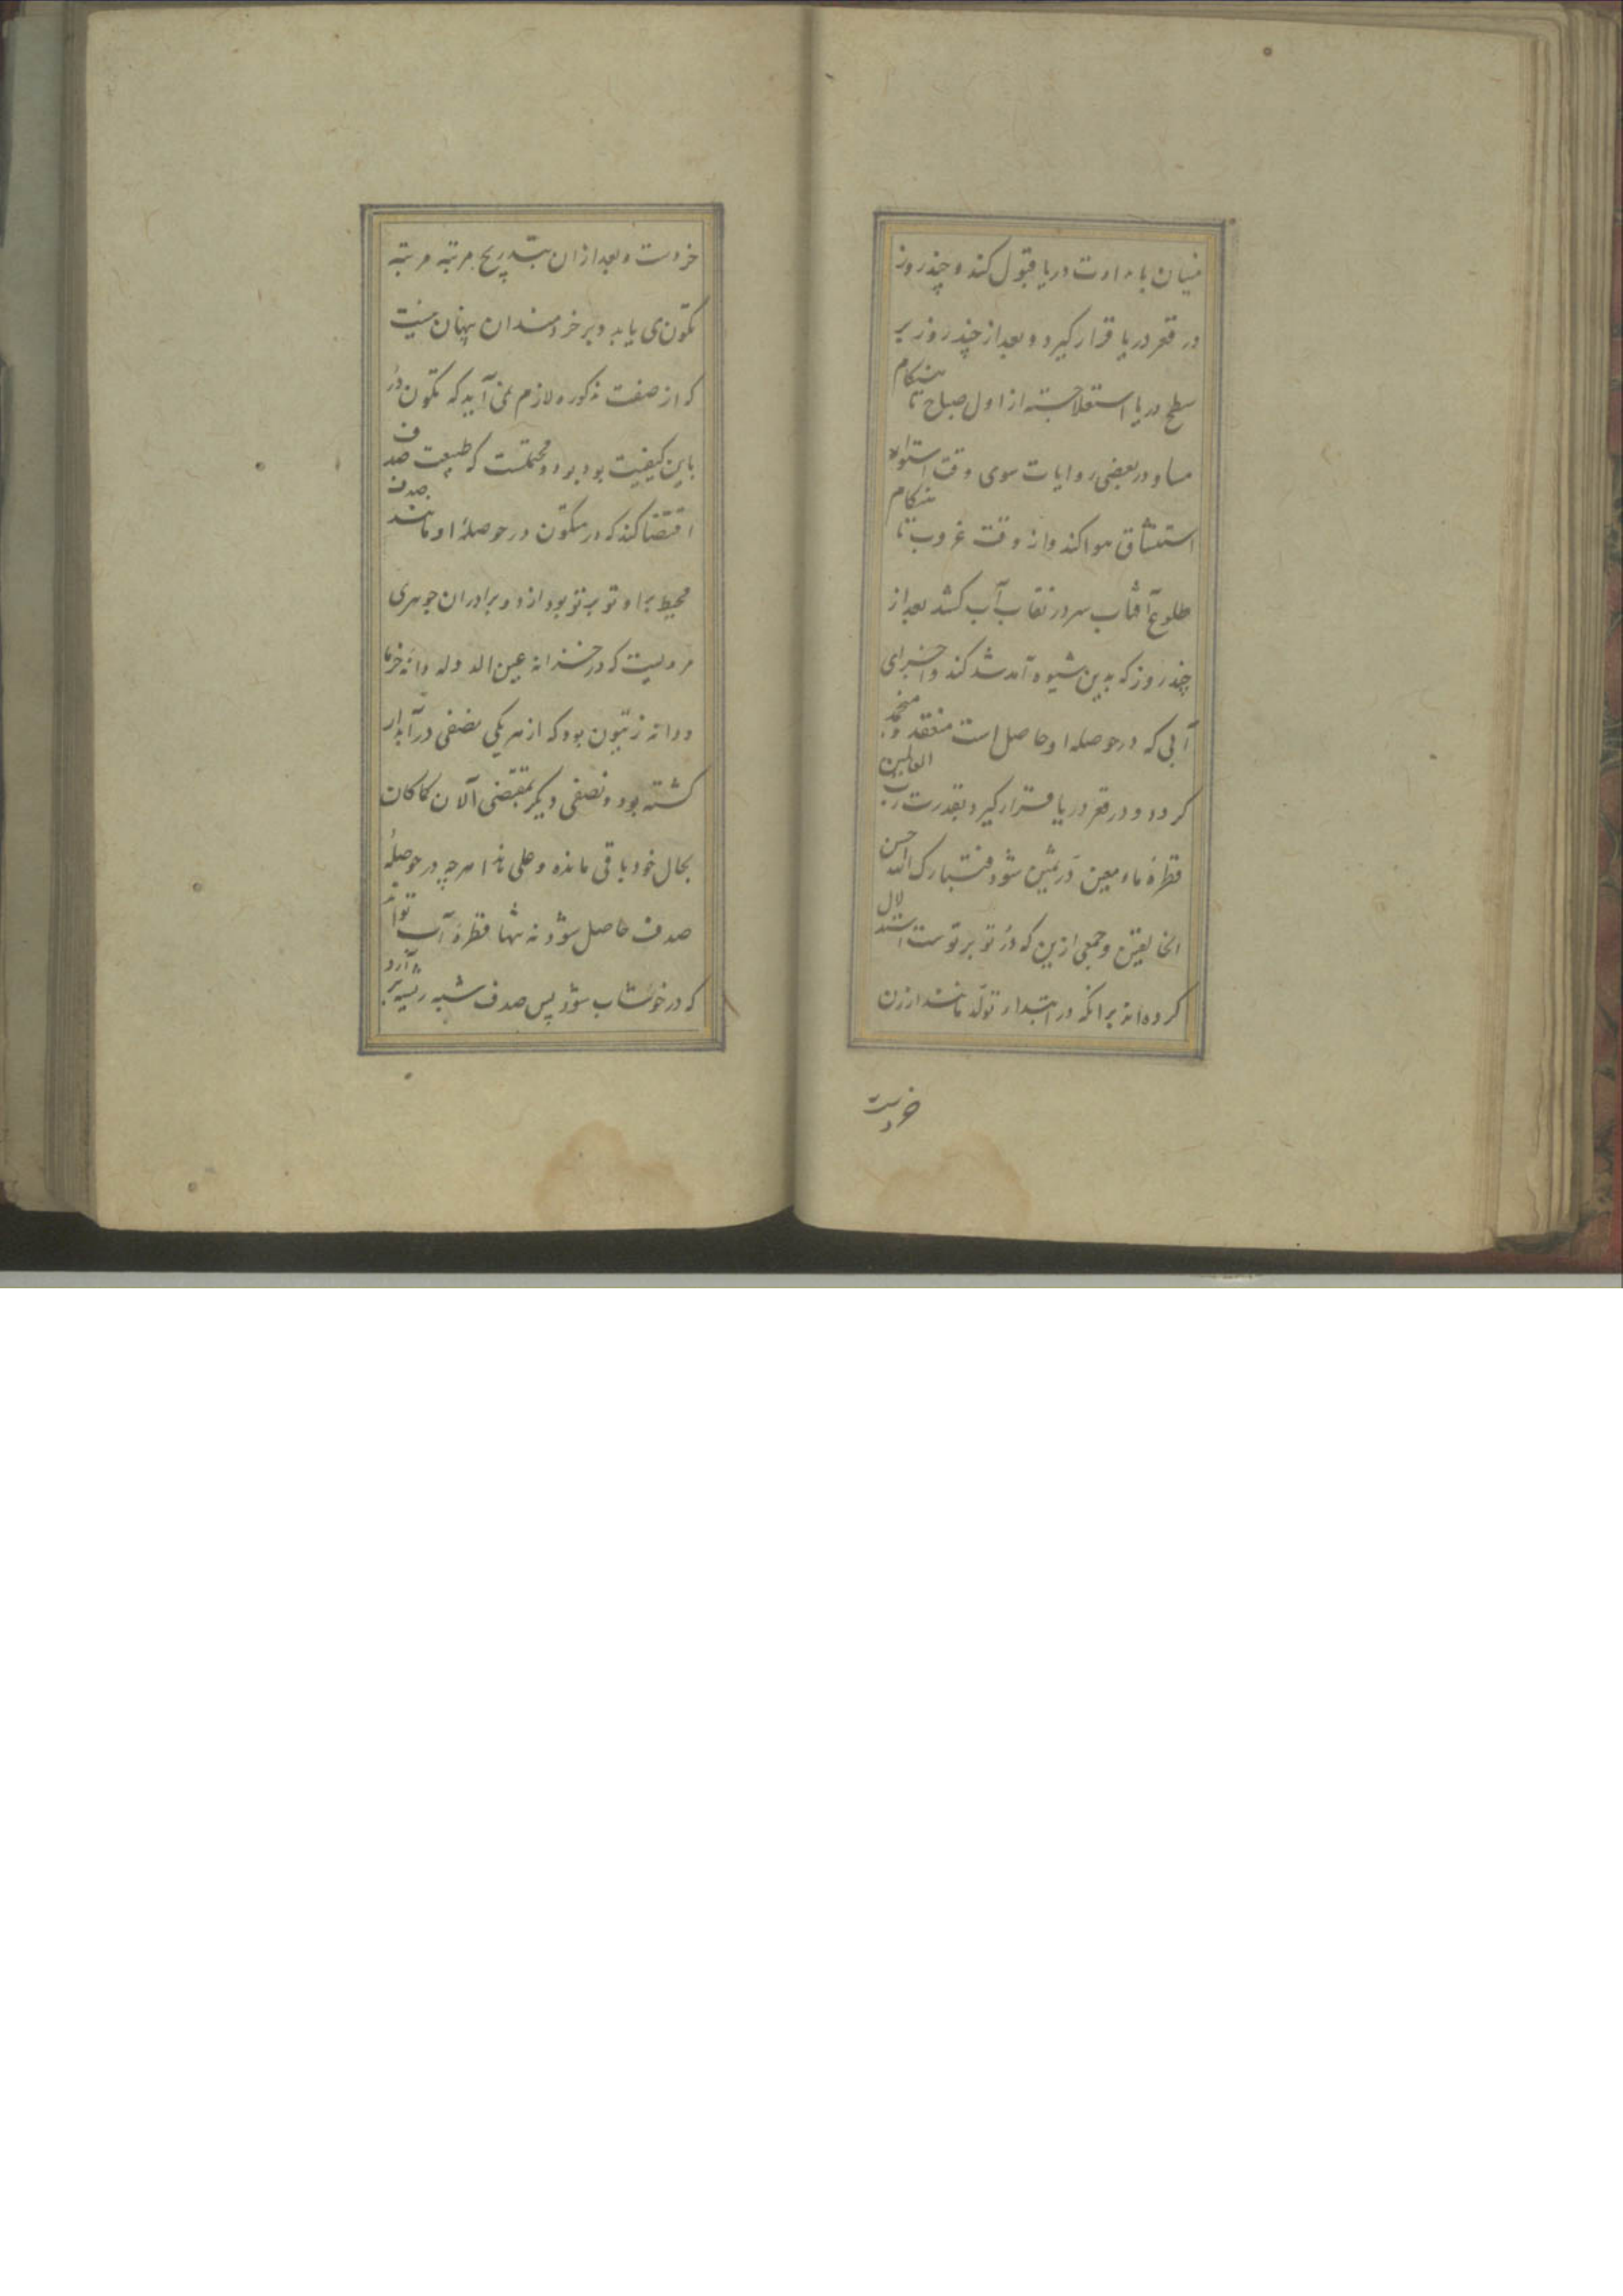 نیسان بامداوت دریا قبول کند و چند روز
در قعر دریا قرار گیرد و بعد از چند روز بر
سطح دریا استعلا جسته از اول صباح تا هنگام
مسا و در بعضی روایات سوی وقت استواء
استنشاق هوا کند و از وقت غروب تا هنگام
طلوع آفتاب سر در نقاب آب کشد بعد از
چند روز که بدین شیوه آمد شد کند و اجزای
آبی که در حوصله او حاصل است منعقد و منجمد
کردد و در قعر دریا قرار گیرد بقدرت رب العالمین
قطرهٔ ماء معین دُر ثمین شود فتبارک الله احسن
الخالقین و جمعی ازین که دُر تو بر توست استدلال
کرده‌اند برانکه در ابتداء تولّد مانند ارزن
خردست
خردست و بعد ازان بتدریج مرتبه مرتبه
تکون می یابد و بر خردمندان پنهان نیست
که از صفت مذکوره لازم نمی آید که تکون دُر
باین کیفیت بود بود و محتملست که طبیعت صدف
اقتضا کند که در متکون در حوصلهٔ او مانند صدف
محیط براو تو بر تو بود از دو برادران جوهری
مرویست که در خزانه عین الدوله دانه خرما
و دانه زیتون بود که از هر یکی نصفی در آبدار
کشته بود و نصفی دیکر بمقتضی الآن کما کان
بحال خود باقی مانده و علی هذا هر چه در حوصلهٔ
صدف حاصل شود نه تنها قطرهٔ آب تواند
که در خوشاب شود پس صدف شبه ریشه بر آرد